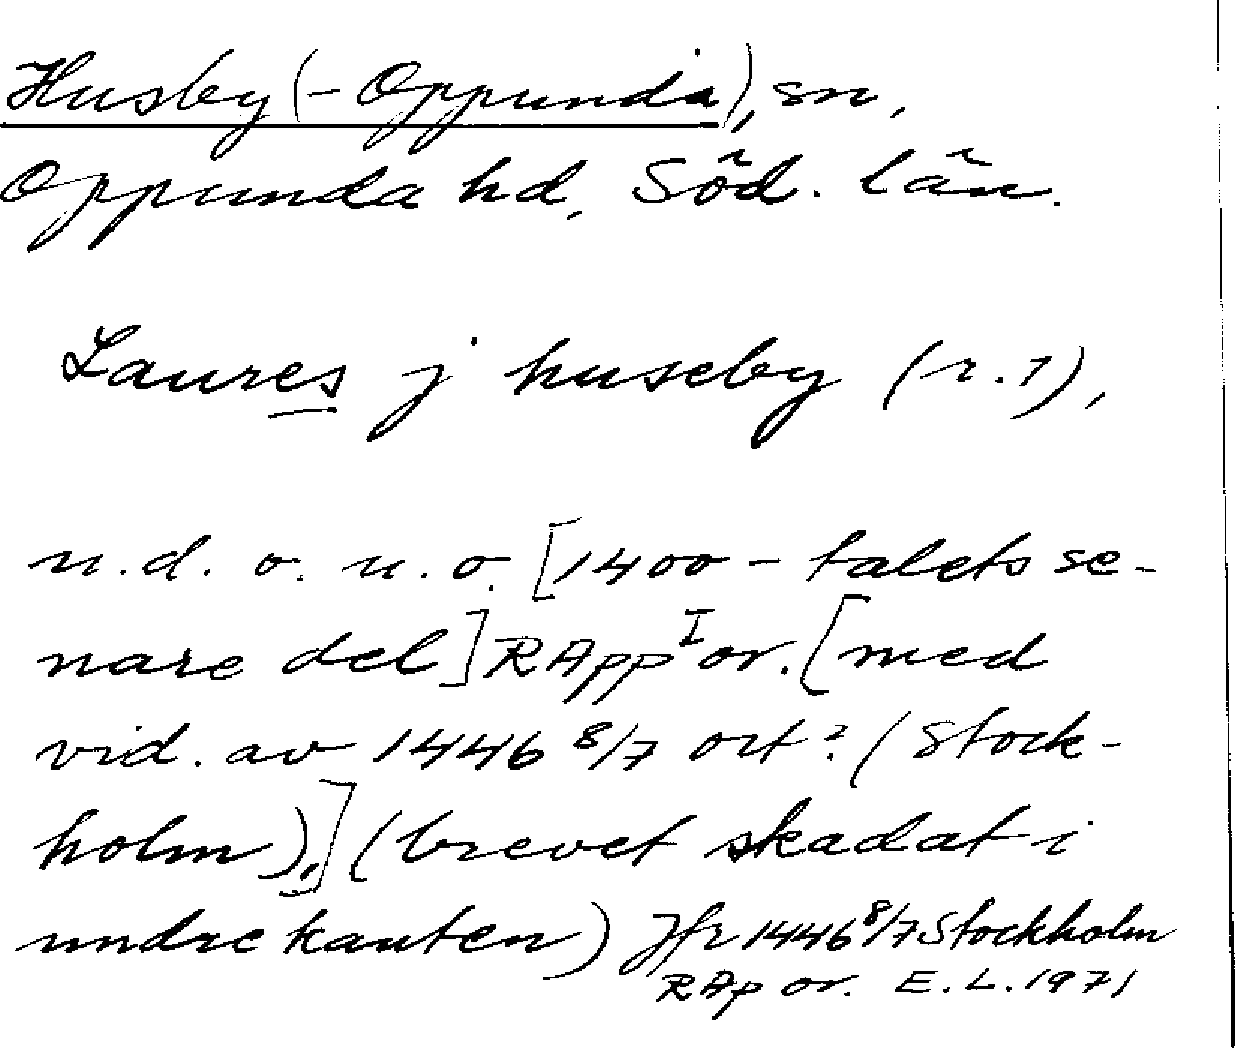 Husby (-Oppunda), sn,
Oppunda hd, Söd. län.
Laures j huseby (r.1),
u.d. o. u.o. [1400-talets se-
nare del] RApp I or. [med
vid. av 1446 8/7 ort? (Stock-
holm),] (brevet skadat i
undre kanten) Jfr 1446 8/7 Stockholm
RAp or. E.L. 1971